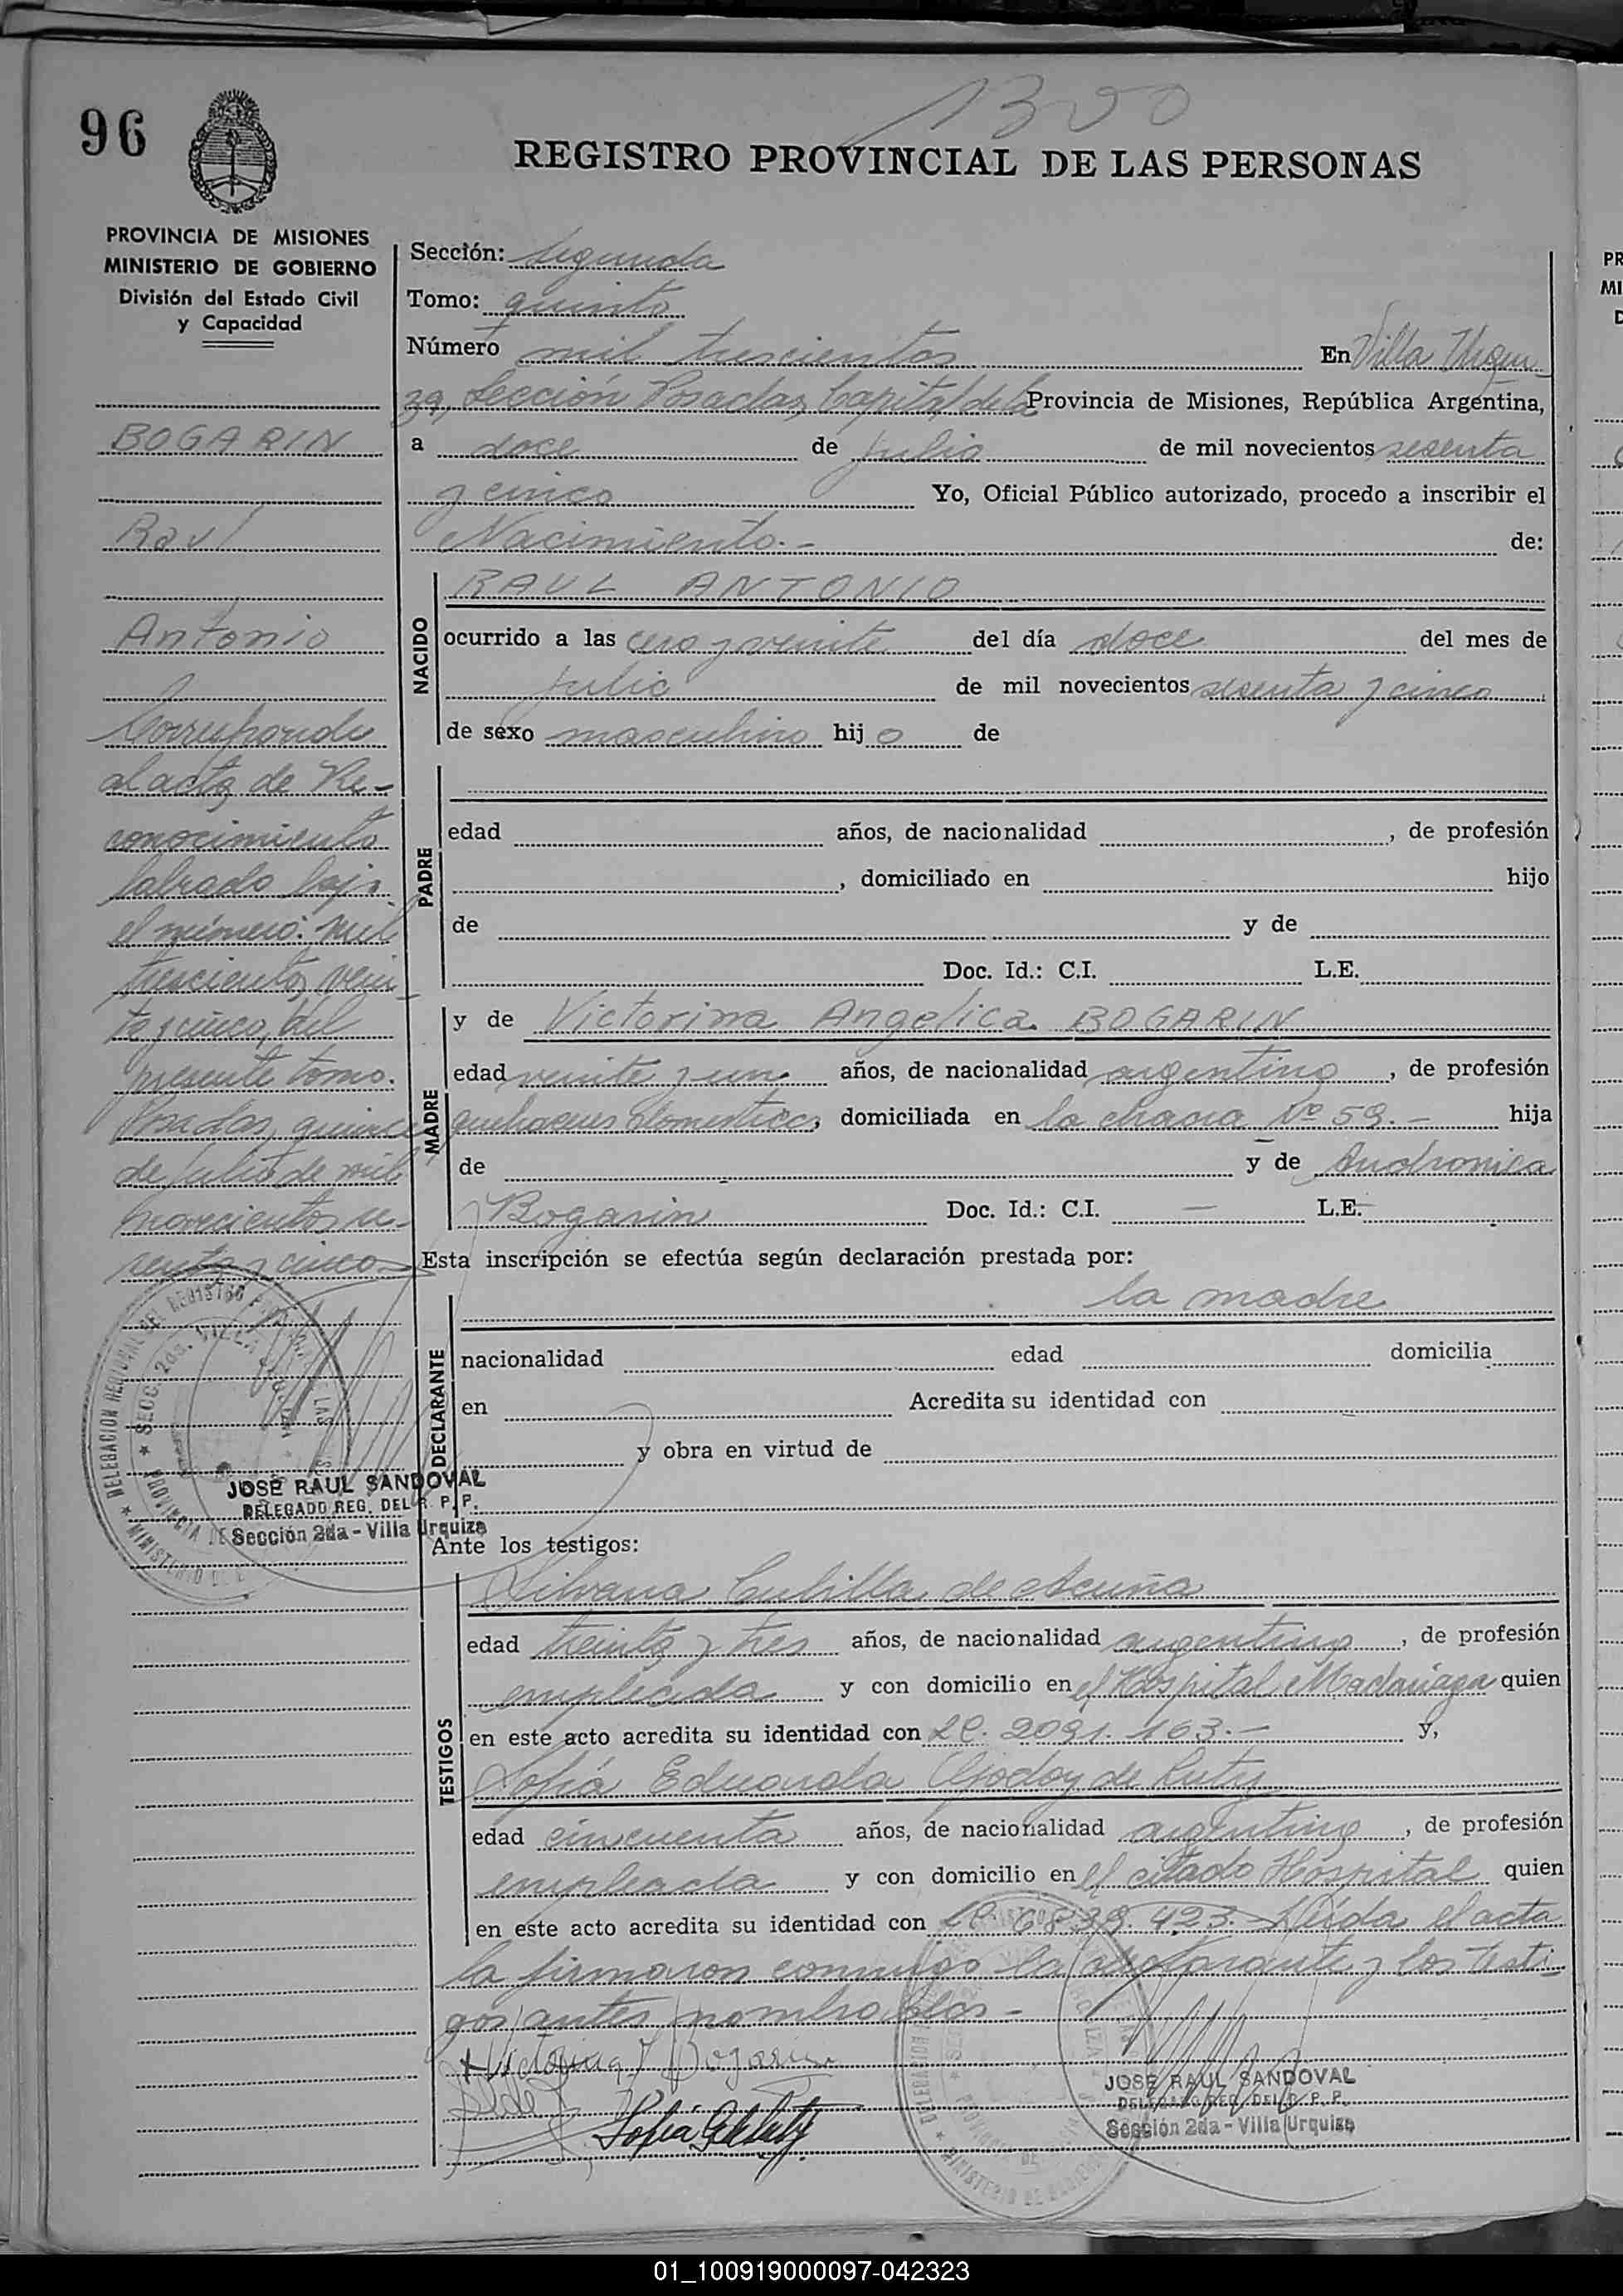 1300
96
REGISTRO PROVINCIAL DE LAS PERSONAS
PROVINCIA DE MISIONES
MINISTERIO DE GOBIERNO
División del Estado Civil
y Capacidad
BOGARIN
Raul
Antonio
Corresponde
al acta de Re-
conocimiento
labrado bajo
el número: mil
trescientos vein-
te y cinco, del
presente tomo.
Posadas, quince
de julio de mil
novecientos se-
senta y cinco
JOSE RAUL SANDOVAL
DELEGADO REG. DEL R. P. P.
Sección 2da - Villa Urquiza
Sección: Segunda
Tomo: quinto
Número mil trescientos En Villa Urqui-
za, Sección Posadas, Capital de la Provincia de Misiones, República Argentina,
a doce de julio de mil novecientos sesenta
y cinco Yo, Oficial Público autorizado, procedo a inscribir el
Nacimiento.- de:
NACIDO
RAUL ANTONIO
ocurrido a las cero y veinte del día doce del mes de
julio de mil novecientos sesenta y cinco
de sexo masculino hijo de
PADRE
edad años, de nacionalidad , de profesión
, domiciliado en hijo
de y de
Doc. Id.: C.I. L.E.
MADRE
y de Victorina Angelica BOGARIN
edad veinte y un años, de nacionalidad argentina, de profesión
quehaceres domesticos, domiciliada en la chacra Nº 59.- hija
de y de Andronica
Bogarin Doc. Id.: C.I. — L.E.
Esta inscripción se efectúa según declaración prestada por:
DECLARANTE
la madre
nacionalidad edad domicilia
en Acredita su identidad con
y obra en virtud de
Ante los testigos:
TESTIGOS
Silvana Cubilla de Acuña
edad treinta y tres años, de nacionalidad argentina, de profesión
empleada y con domicilio en el Hospital Madariaga quien
en este acto acredita su identidad con LC. 2091.163.- y,
Sofía Eduarda Godoy de Ruty
edad cincuenta años, de nacionalidad argentina, de profesión
empleada y con domicilio en el citado Hospital quien
en este acto acredita su identidad con LC. 6839.423.- Leída el acta
la firmaron conmigo la declarante y los testi-
gos antes nombrados.-
Victorina Bogarin
JOSE RAUL SANDOVAL
DELEGADO REG. DEL R. P. P.
Sección 2da - Villa Urquiza
01_100919000097-042323